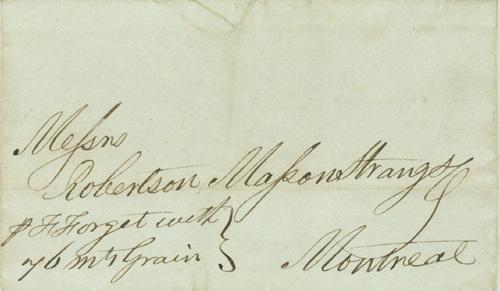 Messrs
Robertson, Masson Strang &
p F Forget with
76 mts Grain
Montreal